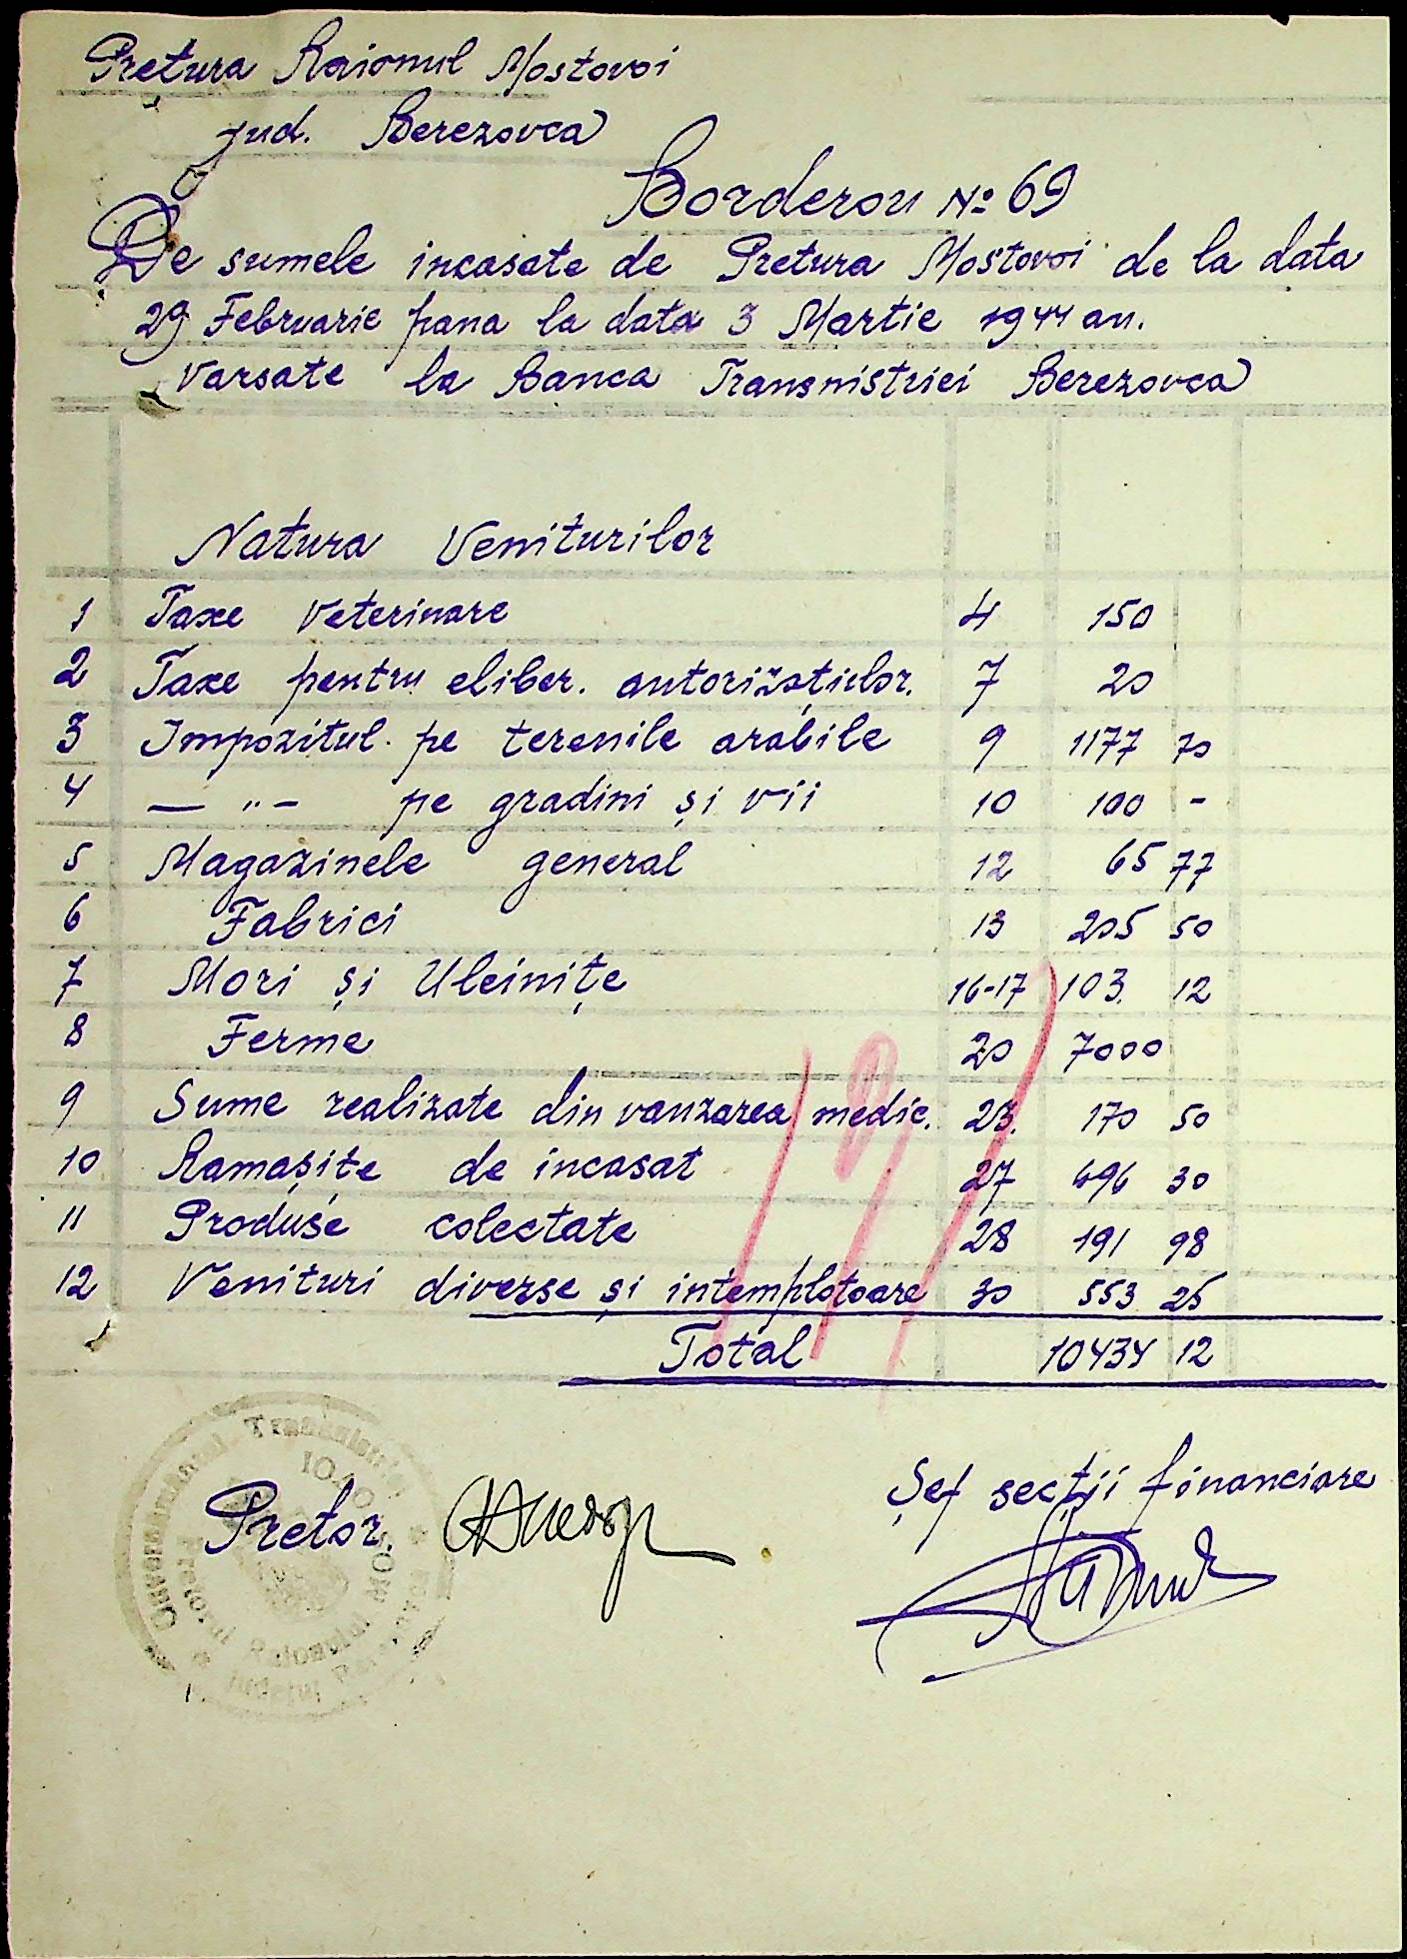 Pretura Raionul Mostovoi
jud. Berezovca
Borderou № 69
De sumele incasate de Pretura Mostovoi de la data
29 Februarie pana la data 3 Martie 1944 an.
Varsate la Banca Transnistriei Berezovca
Natura Veniturilor
1 Taxe Veterinare 4 150
2 Taxe pentru eliber. autorizațiilor. 7 20
3 Impozitul pe terenile arabile 9 1177 70
4 — „ – pe gradini și vii 10 100 -
5 Magazinele general 12 65 77
6 Fabrici 13 205 50
7 Mori și Uleinițe 16-17 103. 12
8 Ferme 20 7000
9 Sume realizate din vanzarea medic. 23. 170 50
10 Ramașițe de incasat 27 696 30
11 Produse colectate 28 191 98
12 Venituri diverse și intemplatoare 30 553 25
Total 10434 12
Șef secții financiare
Pretor.
Guvernământul Transnistriei